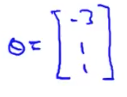 θ = [-3
1
1]